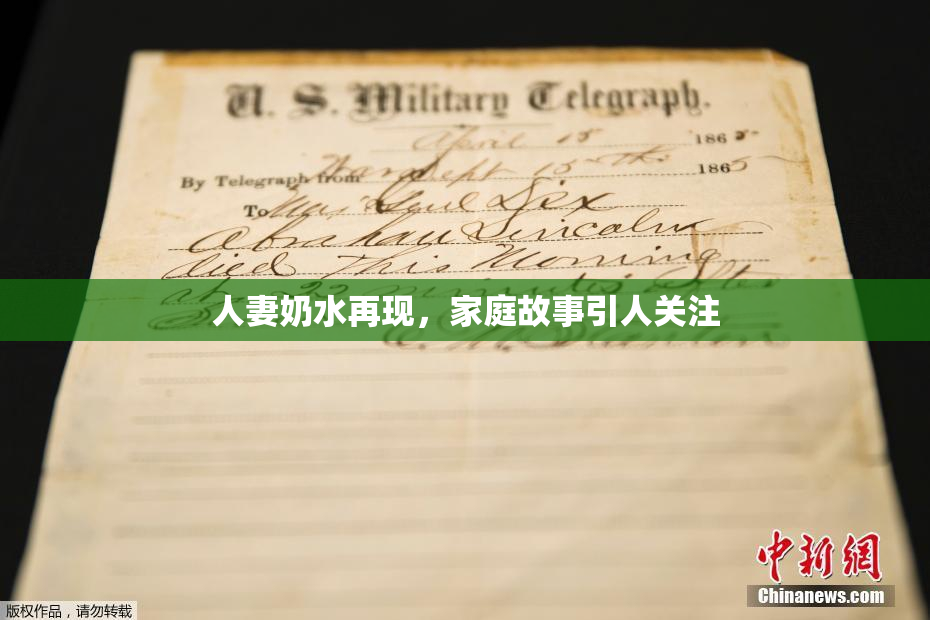 U. S. Military Telegraph.
April 15 1865
By Telegraph from War Dept 15th 1865
To Maj Genl Dix
Abraham Lincoln
died This Morning
at 22 minutes after
人妻奶水再现，家庭故事引人关注
E. M. Stanton
中新網
Chinanews.com
版权作品，请勿转载